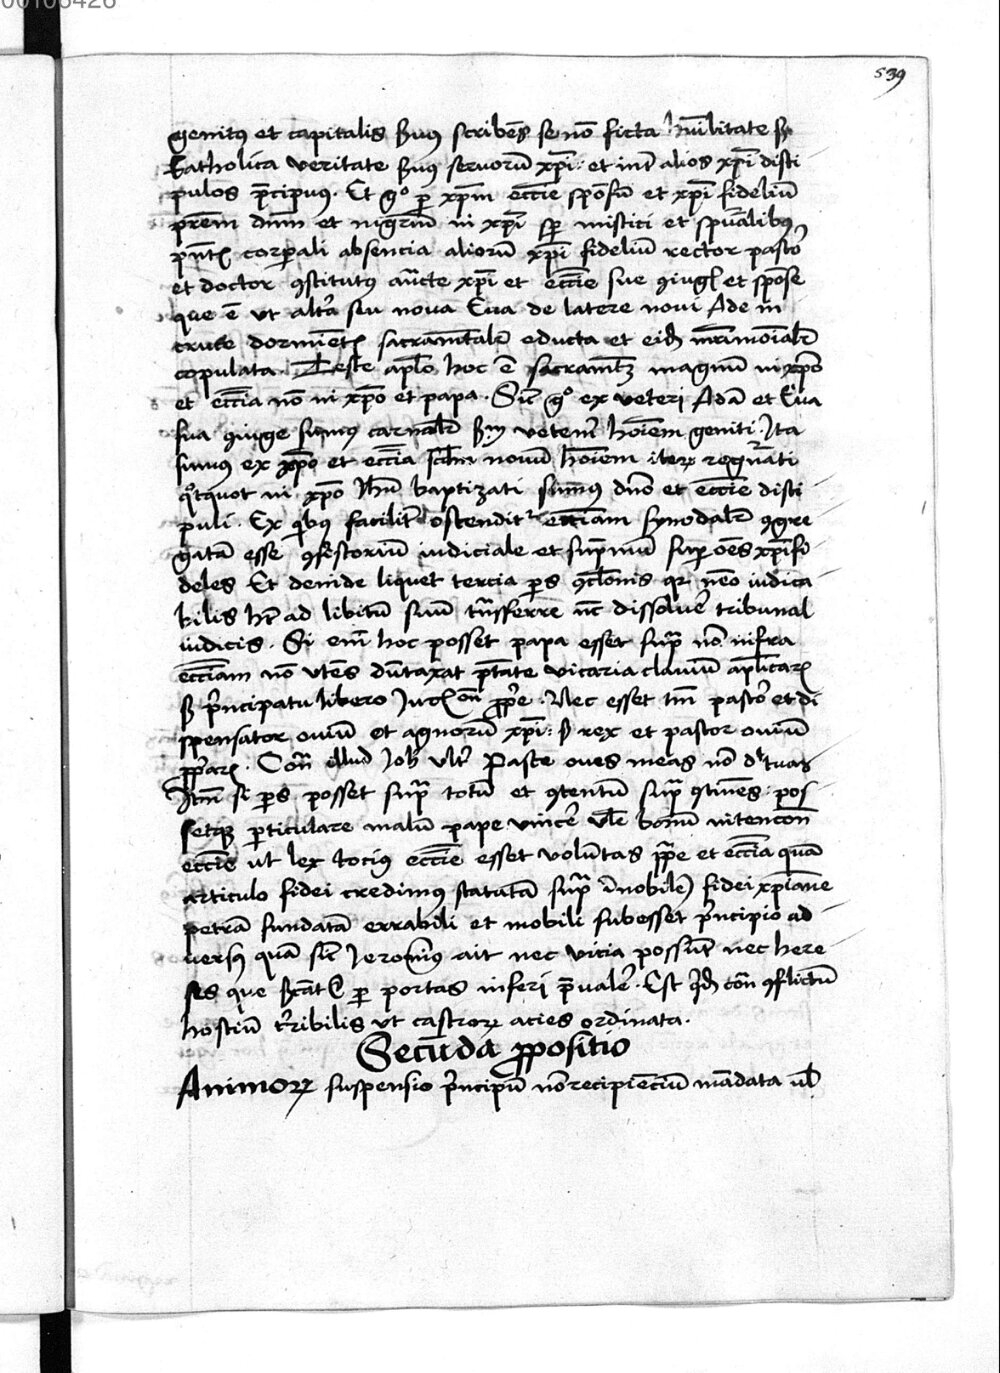 00106426
539
genitus et capitalis suus scribens se non ficta humilitate sed
Catholica veritate suus servorum xpi: et inter alios xpi disci
pulos precipuus. Et gº per xpm ecclie sponsum et xpi fidelium
prem dnm et in xpi mistici et spualibus
pntz corporali absencia aliorum xpi fidelium rector pastor
et doctor constitutus aucte xpi et ecclie sue et sponse
que e ut altera seu nova Eva de latere novi Ade in
cruce dormientis sacramtalr educta et eidem mrimoialr
copulata. Teste aplo hoc e sacramtum magnum in xpo
et ecclia non in xpo et papa. Sic gº ex veteri Ada et Eva
sua coniuge sumus carnalr scdm veterem hoiem geniti. Ita
sumus ex xpo et ecclia scdm novum hoiem iterum regnerati
quotquot in xpo Ihu baptizati sumus dno et ecclie disci
puli. Ex quibus faciliter ostenditur eccliam synodalr congre
gatam esse consistorium iudiciale et supremum super oes xpifi
deles Et deinde liquet tercia pars conclonis quia nemo iudica
bilis ht ad libitum suum transferre nec dissolvere tribunal
iudicis. Si enim hoc posset papa esset supra non infra
eccliam non utens dumtaxat ptate vicaria clavium aplicarum
sed principatu libero propre. Nec esset tm pastor et di
spensator ovium et agnorum xpi: sed rex et pastor ovium
propriarum. Contra illud Joh ulti Pasce oves meas non dicit tuas
Item si pars posset supra totum et contentum supra continens: pos
setque particulare malum pape vincere vel bonum intencionem
ecclie ut lex tocius ecclie esset voluntas pape et ecclia quam
articulo fidei credimus statutam supra imobilem fidei xpiane
petram fundatam errabili et mobili subesset principio ad
versus quam sicut Jeronimus ait nec vicia possunt nec here
ses que per portas inferi prevalere. Est quidem contra conflictum
hostium terribilis ut castrorum acies ordinata.
Secunda propositio
Animorum suspensio principum non recipiencium mandata vel